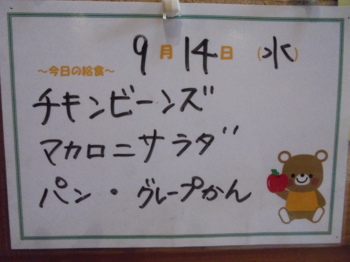 9月14日(水)
～今日の給食～
チキンビーンズ
マカロニサラダ
パン・グレープかん